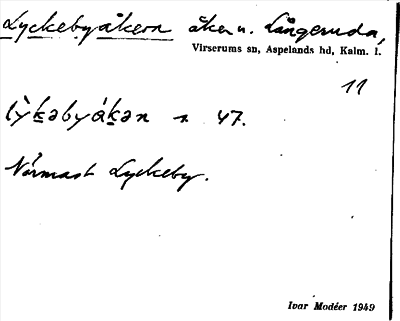 Lyckebyåkern åker u. Långeruda,
Virserums sn, Aspelands hd, Kalm. l.
11
47.
Närmast Lyckeby.
Ivar Modéer 1949